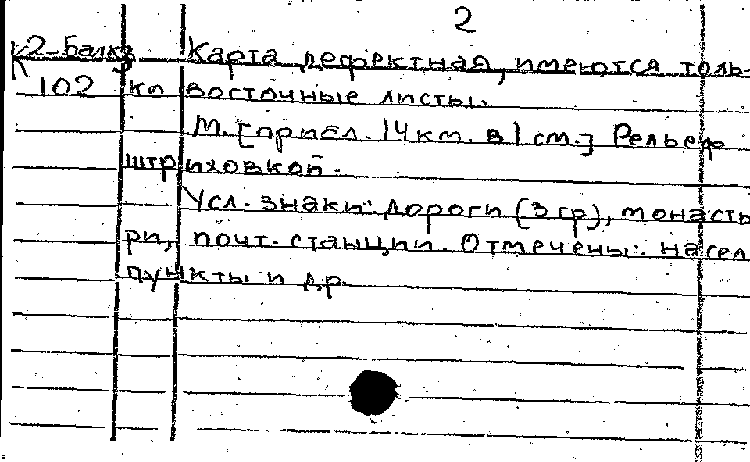 2
к2-Балк Карта дефектная, имеются толь-
102 ко восточные листы.
М. [прибл. 14 км. в 1 см.] Рельеф
штриховкой.
Усл. знаки: дороги (3 гр), монасты
ри, почт. станции. Отмечены: насел
пункты и др.